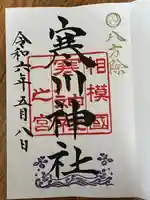 八方除
相模國
一之宮
寒川神社
令和六年五月八日